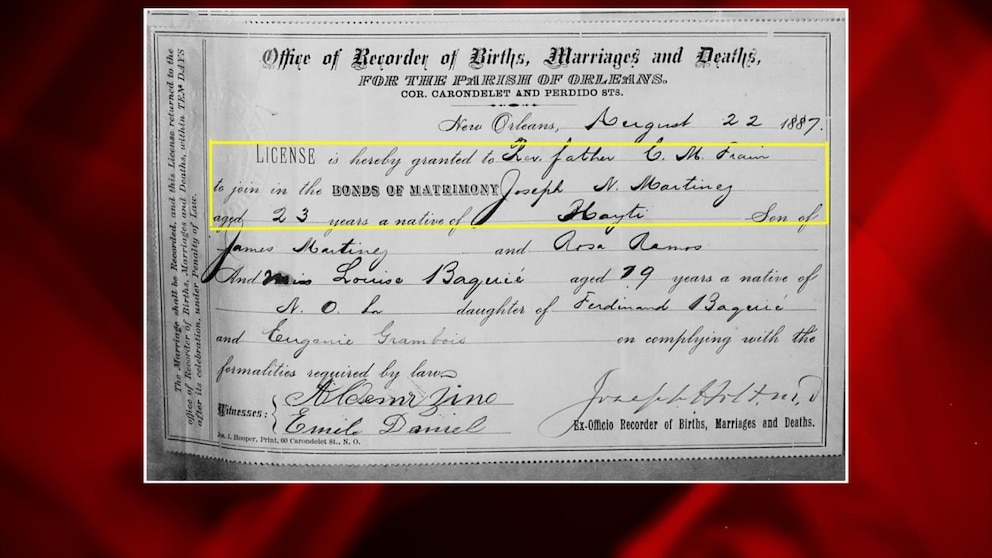 Office of Recorder of Births, Marriages and Deaths,
FOR THE PARISH OF ORLEANS.
COR. CARONDELET AND PERDIDO STS.
New Orleans, August 22 1887.
LICENSE is hereby granted to Rev. father C. M. Frain
to join in the BONDS OF MATRIMONY Joseph N. Martinez
aged 23 years a native of Hayti Son of
James Martinez and Rosa Ramos
And miss Louise Baquié aged 19 years a native of
N. O. La daughter of Ferdinand Baquié
and Eugenie Grambois on complying with the
formalities required by law.
Witnesses:
Emile Daniel
Ex-Officio Recorder of Births, Marriages and Deaths.
Jas. J. Hooper, Print, 60 Carondelet St., N. O.
The Marriage shall be Recorded, and this License returned to the
office of Recorder of Births, Marriages and Deaths, within TEN DAYS
after its celebration, under Penalty of Law.